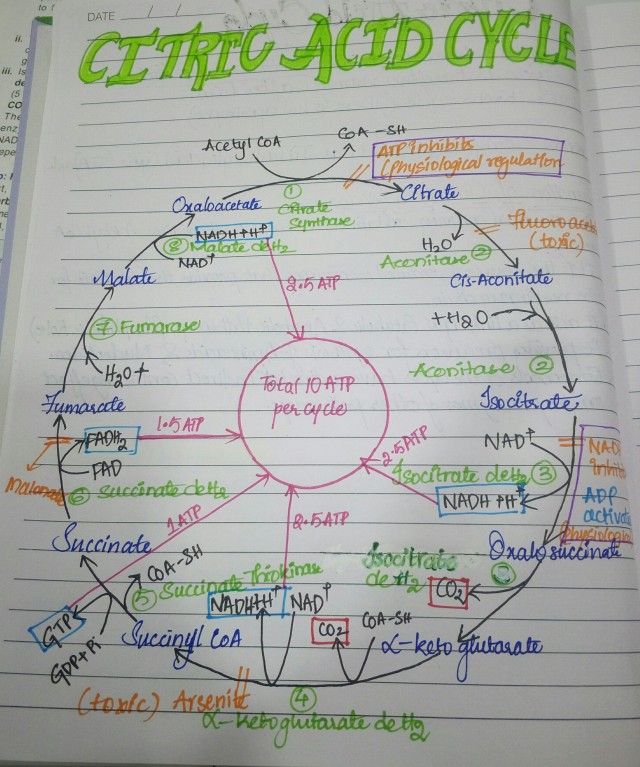 DATE
CITRIC ACID CYCLE
Acetyl CoA
CoA-SH
ATP inhibits
(physiological regulation
Oxaloacetate
①
Citrate
Synthase
Citrate
NADH+H⁺
⑧ Malate deH2
NAD⁺
H₂O
Aconitase ②
(toxic)
Malate
2.5ATP
Cis-Aconitate
+H₂O
⑦ Fumarase
H₂O+
Total 10 ATP
per cycle
Aconitase ②
Fumarate
Isocitrate
1.5 ATP
FADH₂
FAD
2.5ATP
NAD⁺
Isocitrate deH2 ③
NADH+H⁺
ADP
⑥ Succinate deH2
1 ATP
2.5ATP
Succinate
CoA-SH
⑤ Succinate Thiokinase
Isocitrate
deH2
Oxalosuccinate
CO₂
NADH+H⁺
NAD⁺
GTP
GDP+Pi
Succinyl CoA
CO₂
CoA-SH
α-keto glutarate
(toxic) Arsenite
④
α-ketoglutarate deH2